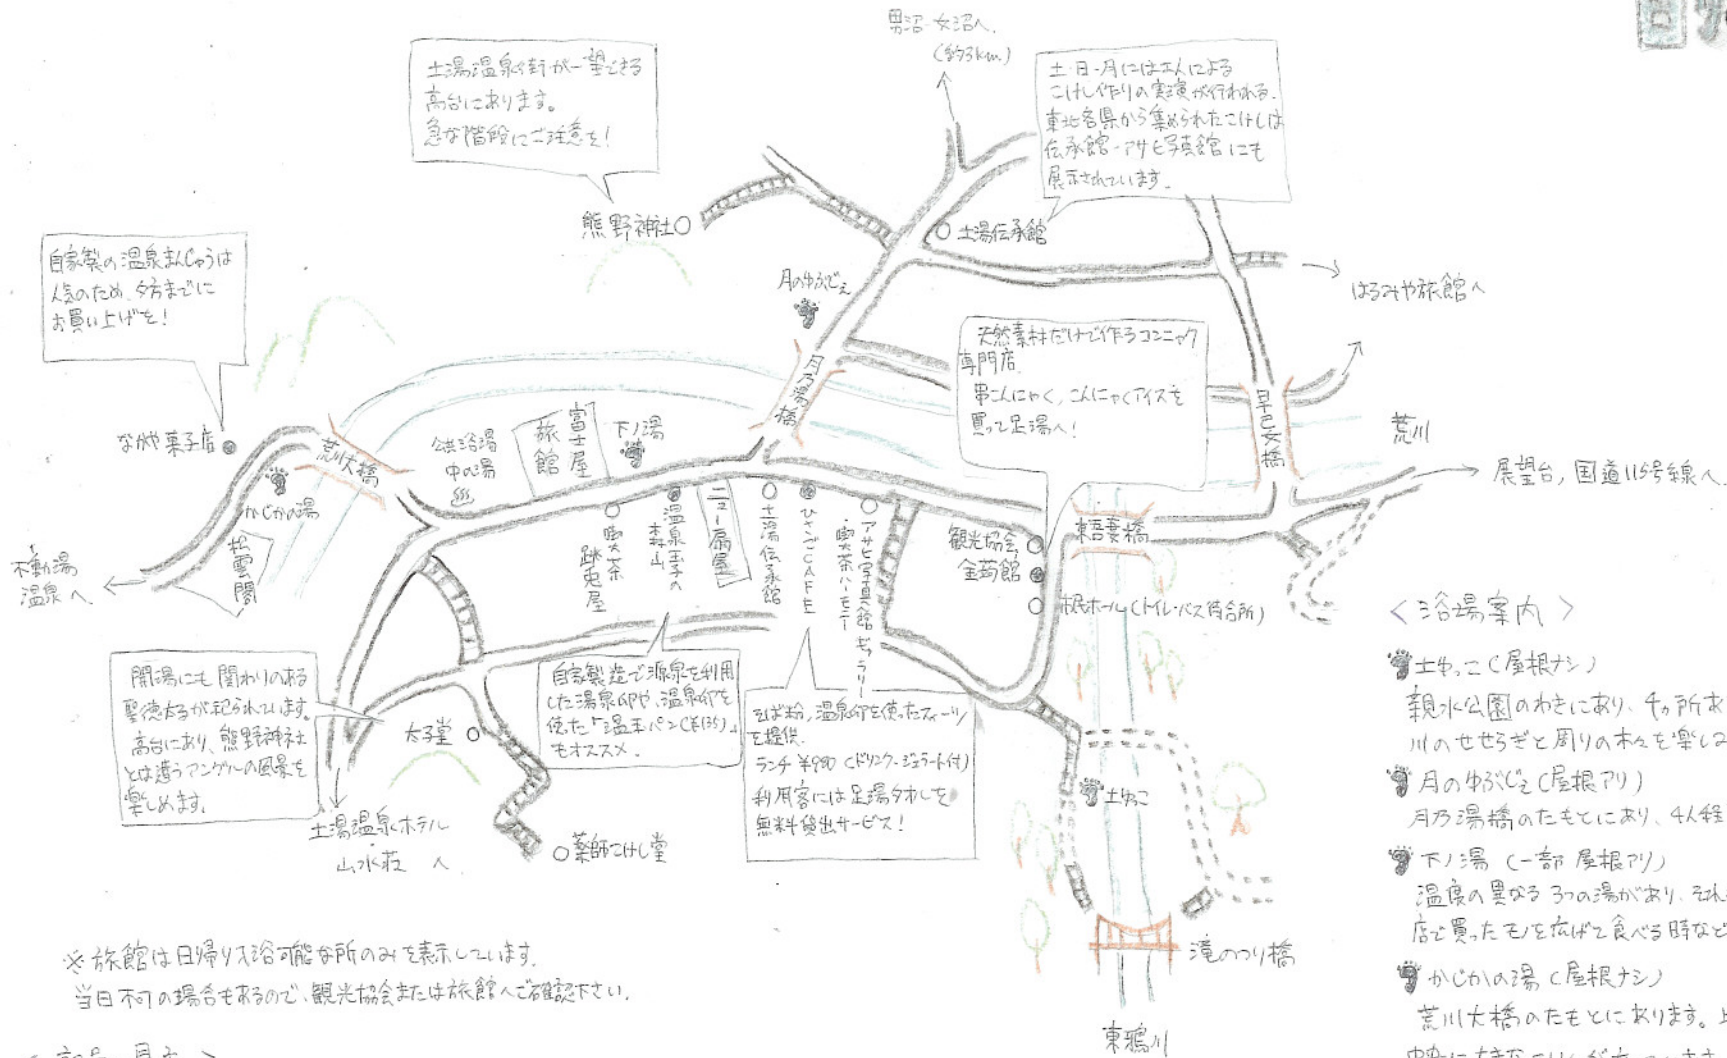 男沼・女沼へ.
(約3km.)
土湯温泉街が一望できる
高台にあります。
急な階段にご注意を!
土・日・月には工人による
こけし作りの実演が行われる.
東北各県から集められたこけしは
伝承館・アサヒ写真館にも
展示されています.
熊野神社
土湯伝承館
自家製の温泉まんじゅうは
人気のため、夕方までに
お買い上げを!
月のゆぶじぇ
はるみや旅館へ
天然素材だけで作るコンニャク
専門店.
串こんにゃく,こんにゃくアイスを
買って足湯へ!
月乃湯橋
早乙女橋
荒川
ながや菓子店
荒川大橋
公共浴場
中の湯
富士屋
旅館
下ノ湯
展望台,国道115号線へ.
かじかの湯
松雲閣
不動湯
温泉へ
喫茶
跡兎屋
温泉玉子の
森山
ニュー扇屋
土湯伝承館
ひさごCAFE
アサヒ写真館ギャラリー
・喫茶ハーモニー
観光協会
金蒟館
市民ホール(トイレ・バス待合所)
東吾妻橋
<浴場案内>
土ゆっこ(屋根ナシ)
親水公園のわきにあり、4ヵ所あ
川のせせらぎと周りの木々を楽しみ
月のゆぶじぇ(屋根アリ)
月乃湯橋のたもとにあり、4人程
下ノ湯 (一部 屋根アリ)
温度の異なる3つの湯があり、それ
店で買ったモノを広げて食べる時など
かじかの湯(屋根ナシ)
荒川大橋のたもとにあります。上
開湯にも関わりのある
聖徳太子が祀られています。
高台にあり、熊野神社
とは違うアングルの風景を
楽しめます。
太子堂
自家製造で源泉を利用
した温泉卵や、温泉卵を
使った「温玉パン(¥135)」
もオススメ.
そば粉,温泉卵を使ったスイーツ
を提供.
ランチ ¥980 (ドリンク・ジェラート付)
利用客には足湯タオルを
無料貸出サービス!
土湯温泉ホテル
山水荘 へ
薬師こけし堂
土ゆっこ
滝のつり橋
東鴉川
※旅館は日帰り入浴可能な所のみを表示しています.
当日不可の場合もあるので、観光協会または旅館へご確認下さい.